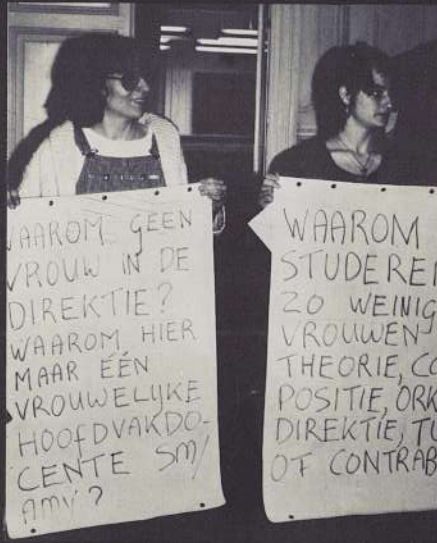 WAAROM GEEN
VROUW IN DE
DIREKTIE?
WAAROM HIER
MAAR ÉÉN
VROUWELIJKE
HOOFDVAKDO-
CENTE SM/
AMV?
WAAROM
STUDEREN
ZO WEINIG
VROUWEN
THEORIE, CO
POSITIE, ORK
DIREKTIE, TU
OF CONTRAB